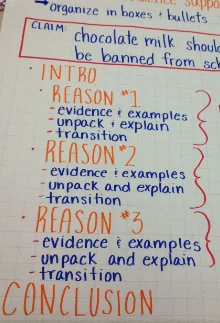 suppo
→ organize in boxes & bullets...
CLAIM: chocolate milk shoul
be banned from sch
• INTRO
• REASON #1
- evidence & examples
- unpack & explain
- transition
• REASON #2
- evidence & examples
- unpack and explain
- transition
• REASON #3
- evidence & examples
- unpack and explain
- transition
CONCLUSION